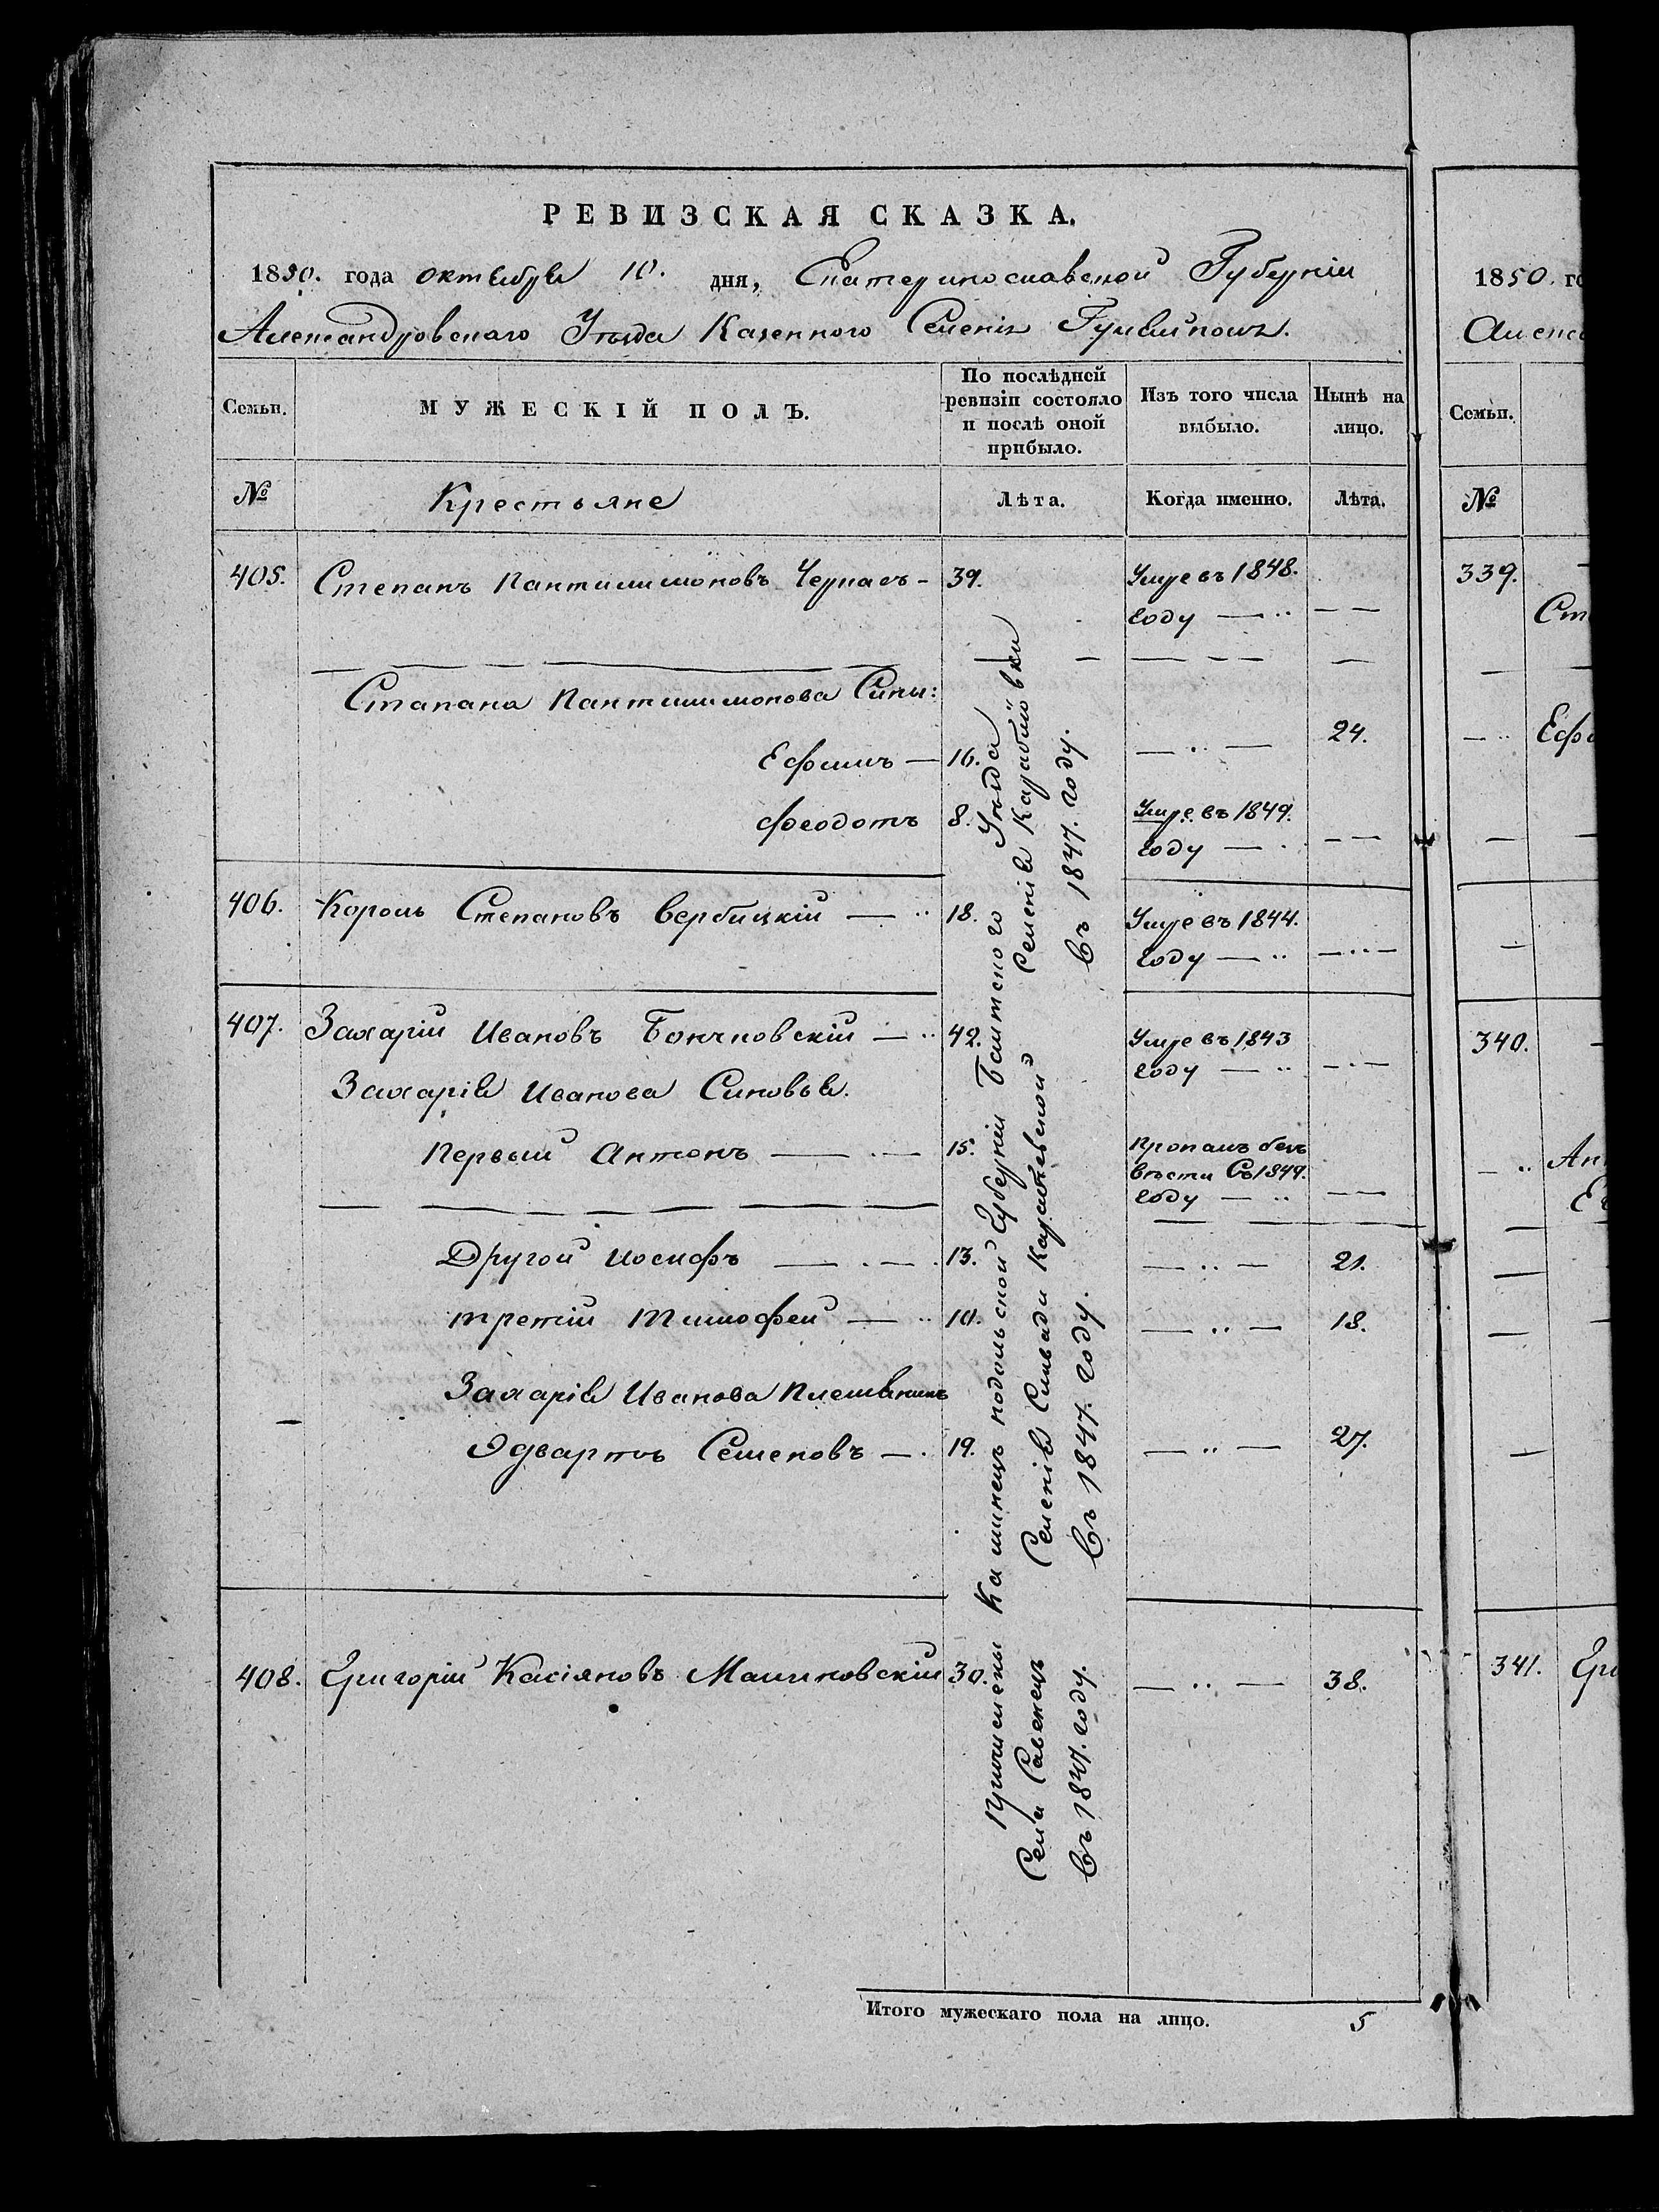 РЕВИЗСКАЯ СКАЗКА.
1850. года октября 10. дня, Екатеринославской Губерніи
Александровского Уѣзда Казенного Селенія Гуляйполя.
Семьи.
МУЖЕСКІЙ ПОЛЪ.
По послѣдней ревизіи состояло и послѣ оной прибыло.
Изъ того числа выбыло.
Нынѣ на лицо.
№ Крестьяне Лѣта. Когда именно. Лѣта.
405. Степанъ Пантилимоновъ - 39. Умре въ 1848.
году — ·· — —
Стапана Пантилимонова Сини:
Ефимъ — 16. — ·· — 24.
Феодотъ 8. Умре въ 1849.
году — · — —
406. Король Степановъ Вербицкій — ·· 18. Умре въ 1844.
году — ·· — ·· —
407. Захарій Ивановъ Бончковскій — ·· 42. Умре въ 1843
году — ·· — · —
Захарія Иванова Синовья.
Первый Антонъ — · — 15. Пропалъ безъ
вѣсти Съ 1849.
году — ·· — —
Другой Иосифъ — · — · 13. — ·· — 21.
третій Тимофей — ·· 10. — ·· — 18.
Захарія Иванова Племяникъ
Эдвартъ Семеновъ — · 19. — ·· — 27.
408. Григорій Касіяновъ Малиновскій 30. — ·· — 38.
Причислены Каминецъ подольской Губерніи Балтского Уѣзда
Села Савенецъ
Въ 1847. году.
Селенія
Въ 1847. году.
Селенія
Въ 1847. году.
Итого мужескаго пола на лицо. 5
1850. го
Алекса
Семьи.
№
339.
Ст
Ефи
340.
Ан
341. Гри